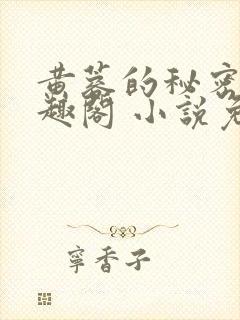 黄蓉的秘密
趣閣 小說免
寧香子